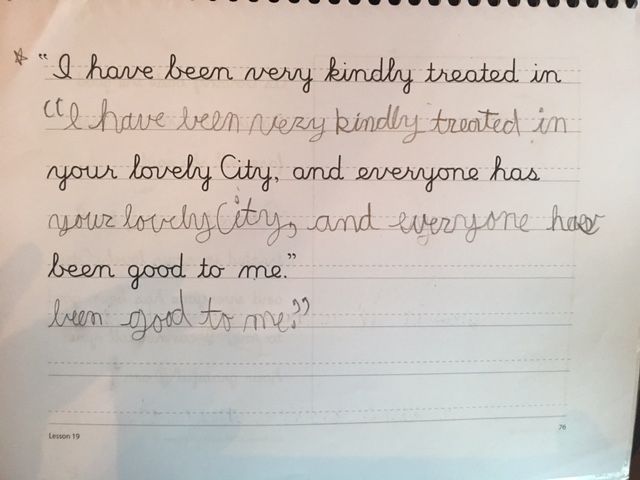 "I have been very kindly treated in
"I have been very kindly treated in
your lovely City, and everyone has
your lovely City, and everyone has
been good to me."
been good to me."
Lesson 19
76